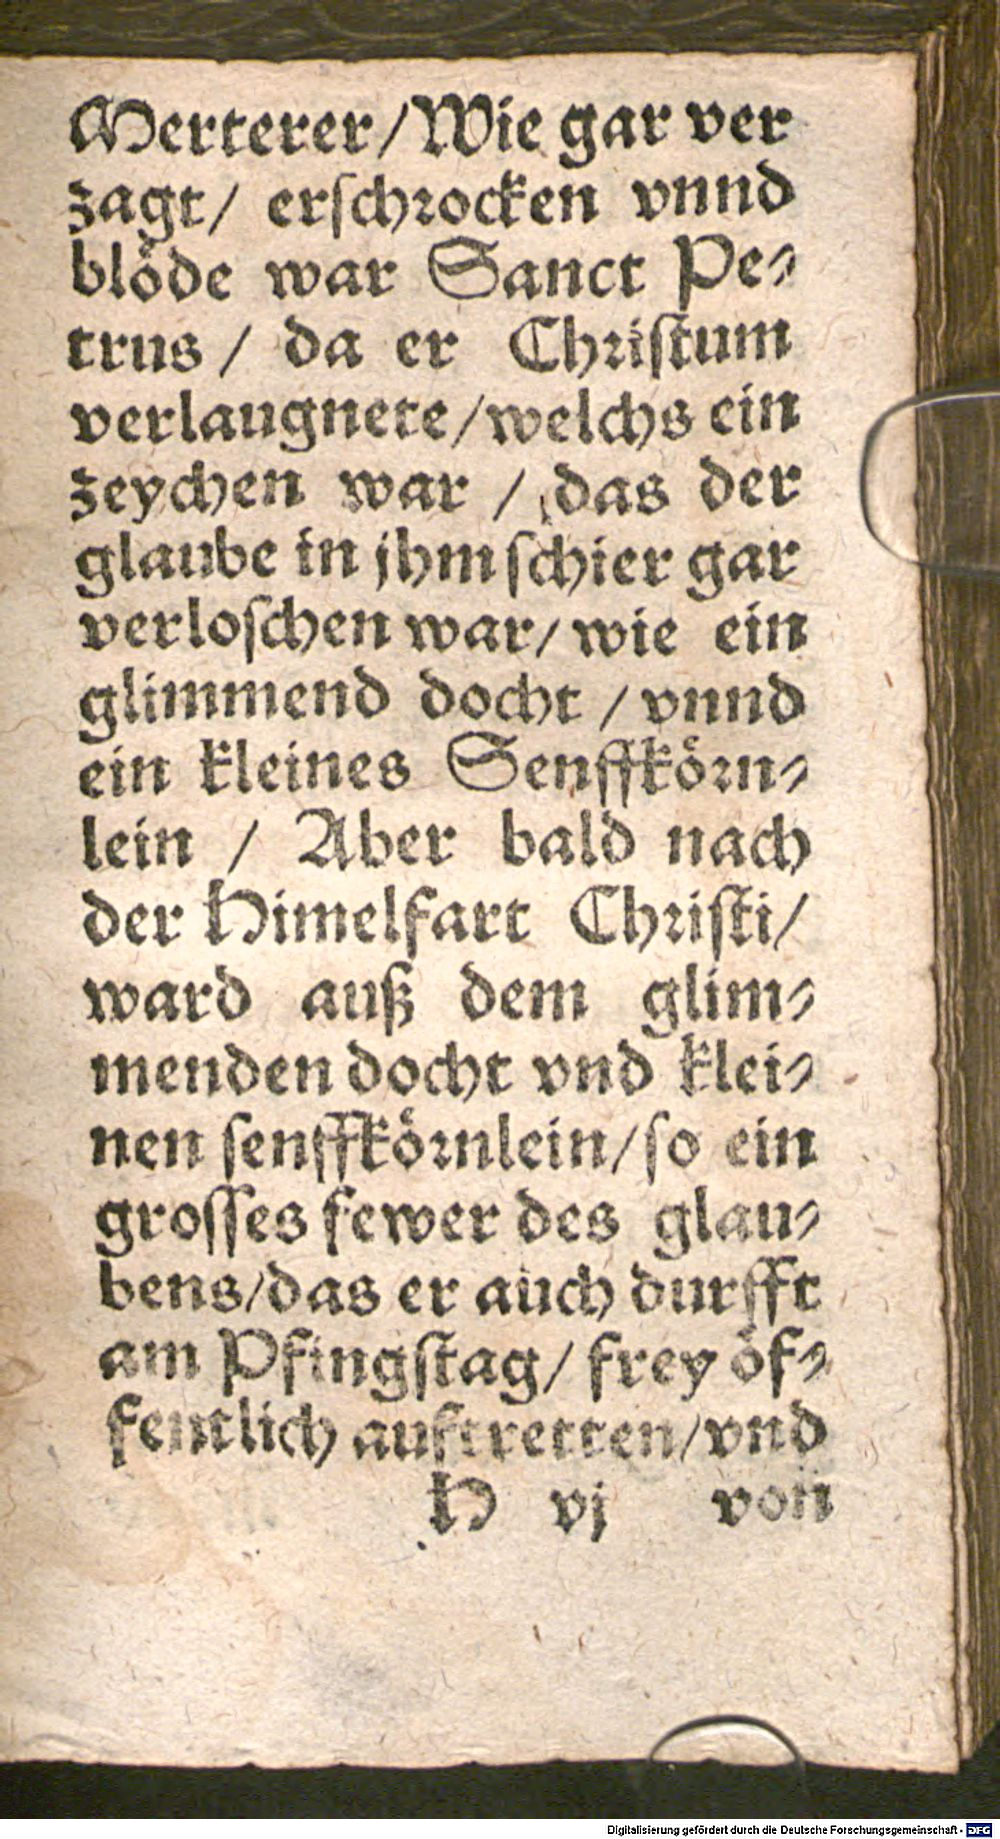 Merterer/Wie gar ver
zagt/ erſchrocken vnnd
blöde war Sanct Pe-
trus / da er Chriſtum
verlaugnete/welchs ein
zeychen war / das der
glaube in jhm ſchier gar
verloſchen war/ wie ein
glimmend docht / vnnd
ein kleines Senffkörn-
lein / Aber bald nach
der Himelfart Chriſti/
ward auß dem glim-
menden docht vnd klei-
nen ſenffkörnlein/ſo ein
groſſes fewer des glau-
bens/das er auch durfft
am Pfingſtag/ frey öf-
fentlich auftretten/vnd
H vj von
Digitalisierung gefördert durch die Deutsche Forschungsgemeinschaft - DFG